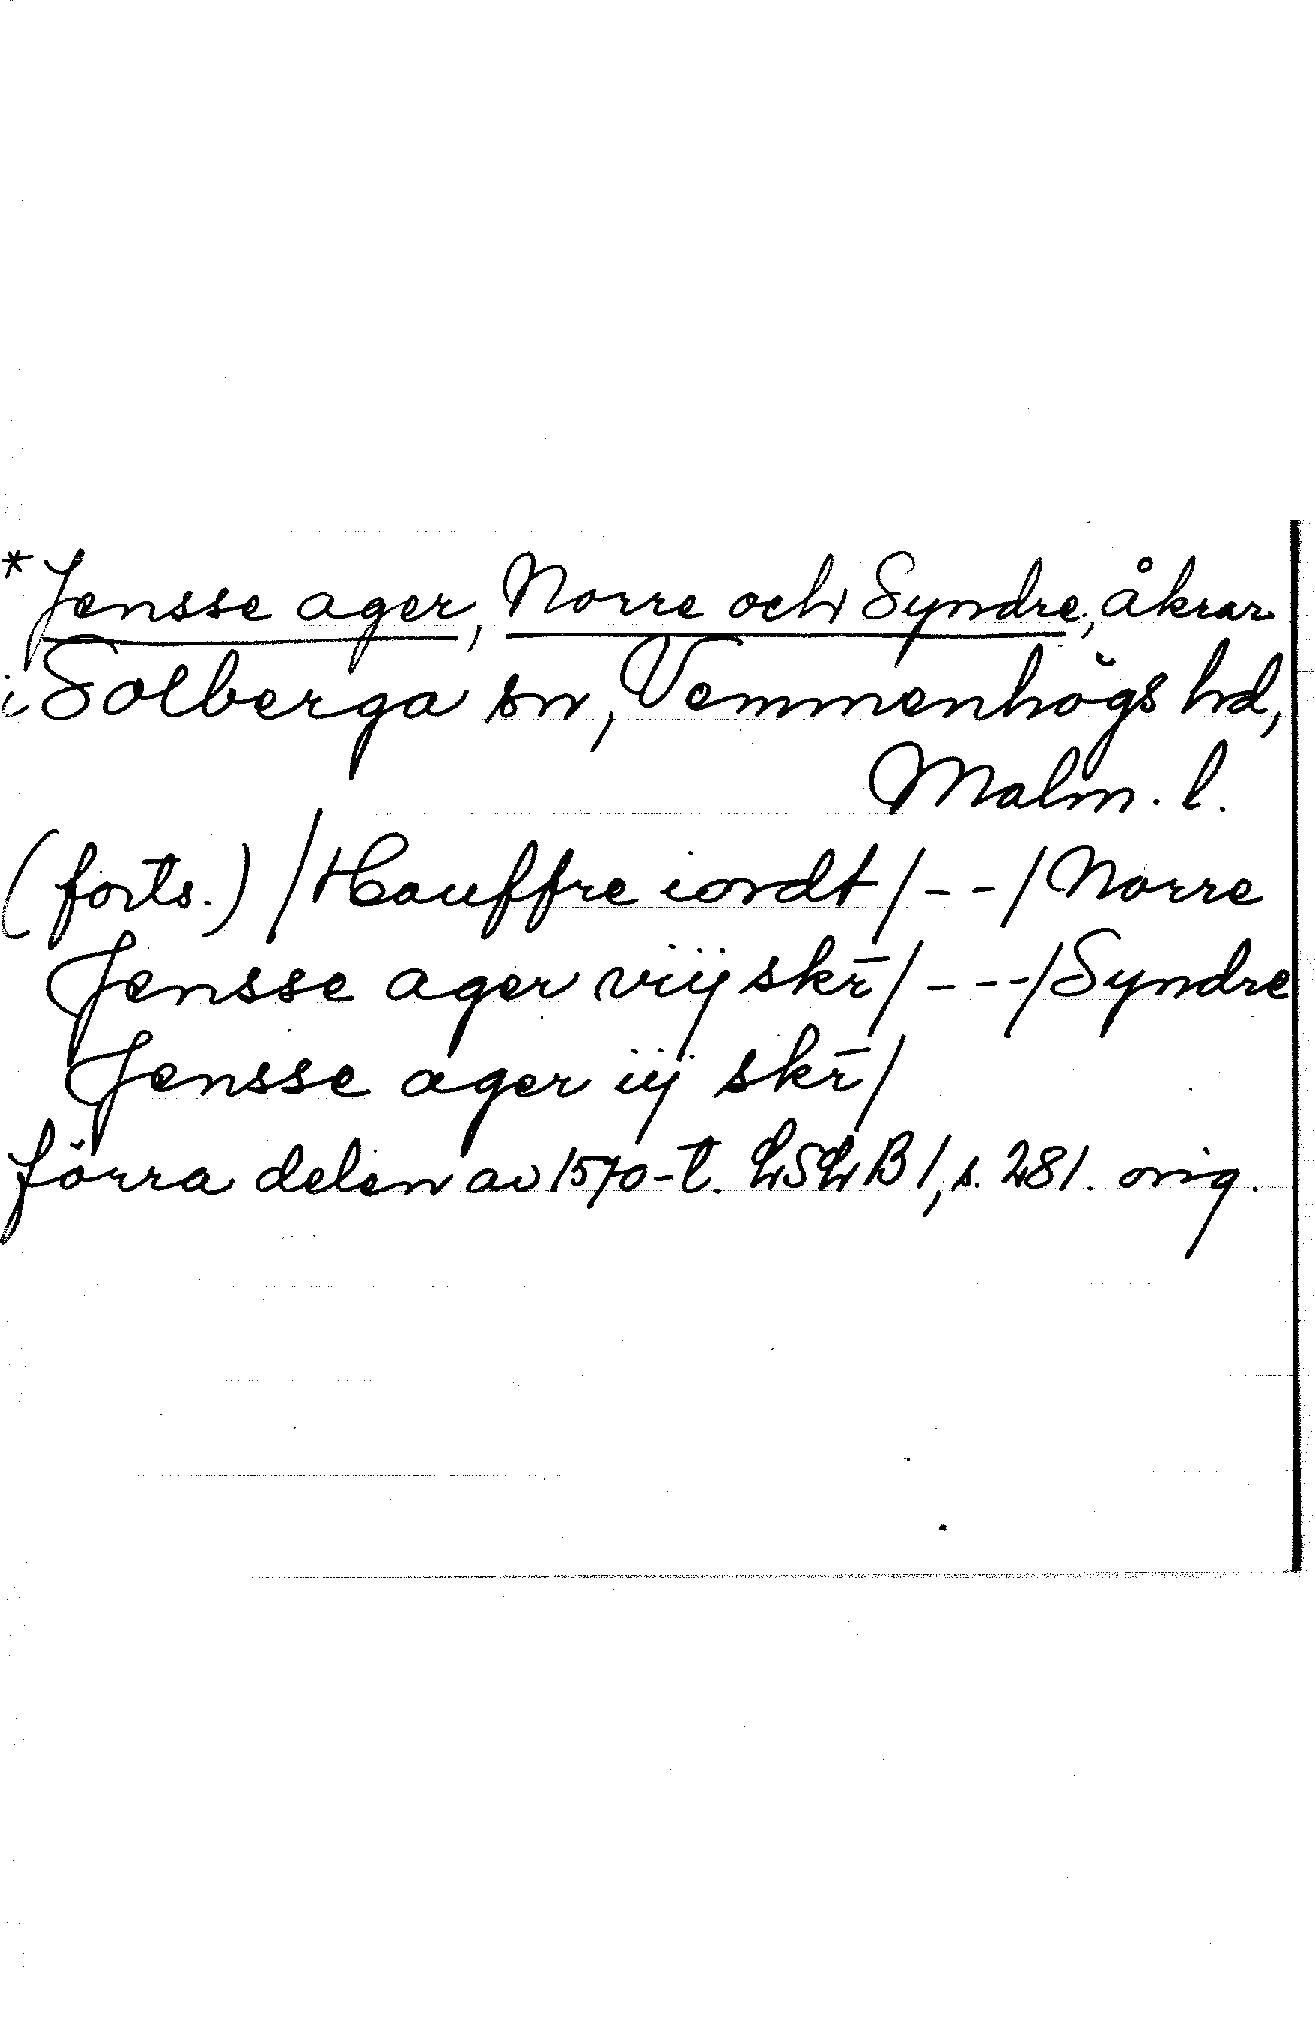 *Jensse ager, Norre och Syndre, åkrar
i Solberga sn, Vemmenhögs hd,
Malm. l.
(forts.) /Houffre iordt/--/Norre
Jensse ager viij skr̄/---/Syndre
Jensse ager iij skr̄/
förra delen av 1570-t. LSLB1, s. 281. orig.